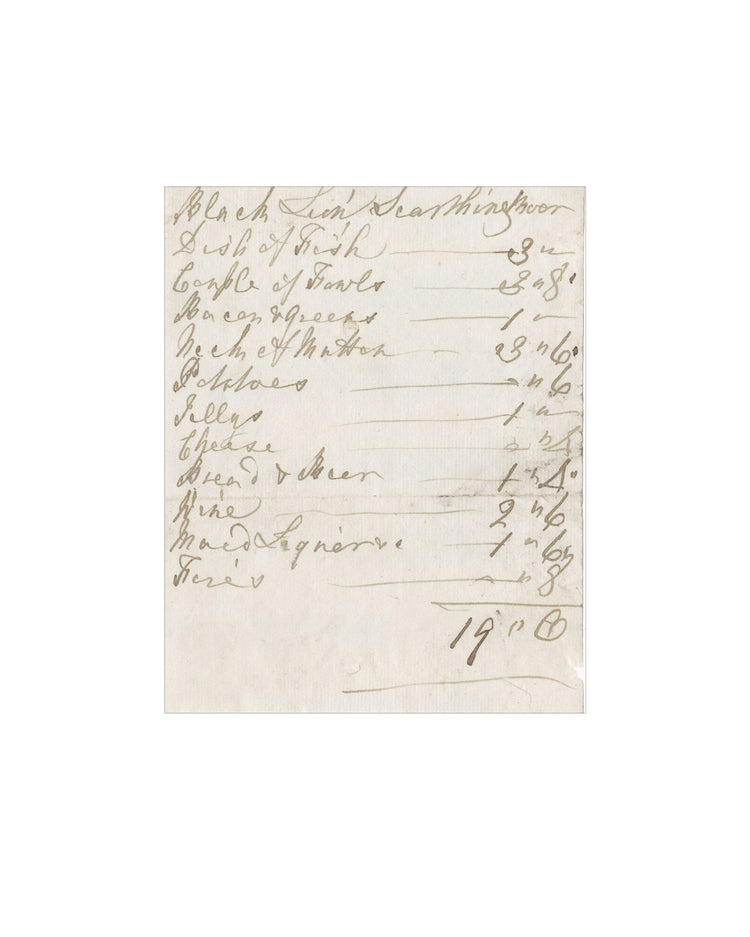 Black Lion Scarthingmoor
Dish of Fish — 3 " —
Couple of Fowls — 3 " 8
Bacon & greens — 1 " —
Neck of Mutton — 3 " 6
Potatoes — " 6
Jellys — 1 " —
Chease — " 4
Bread & Beer — 1 " 4
Wine — 2 " 6
Maid Liquer &c — 1 " 6
Fires — " 8
19 "